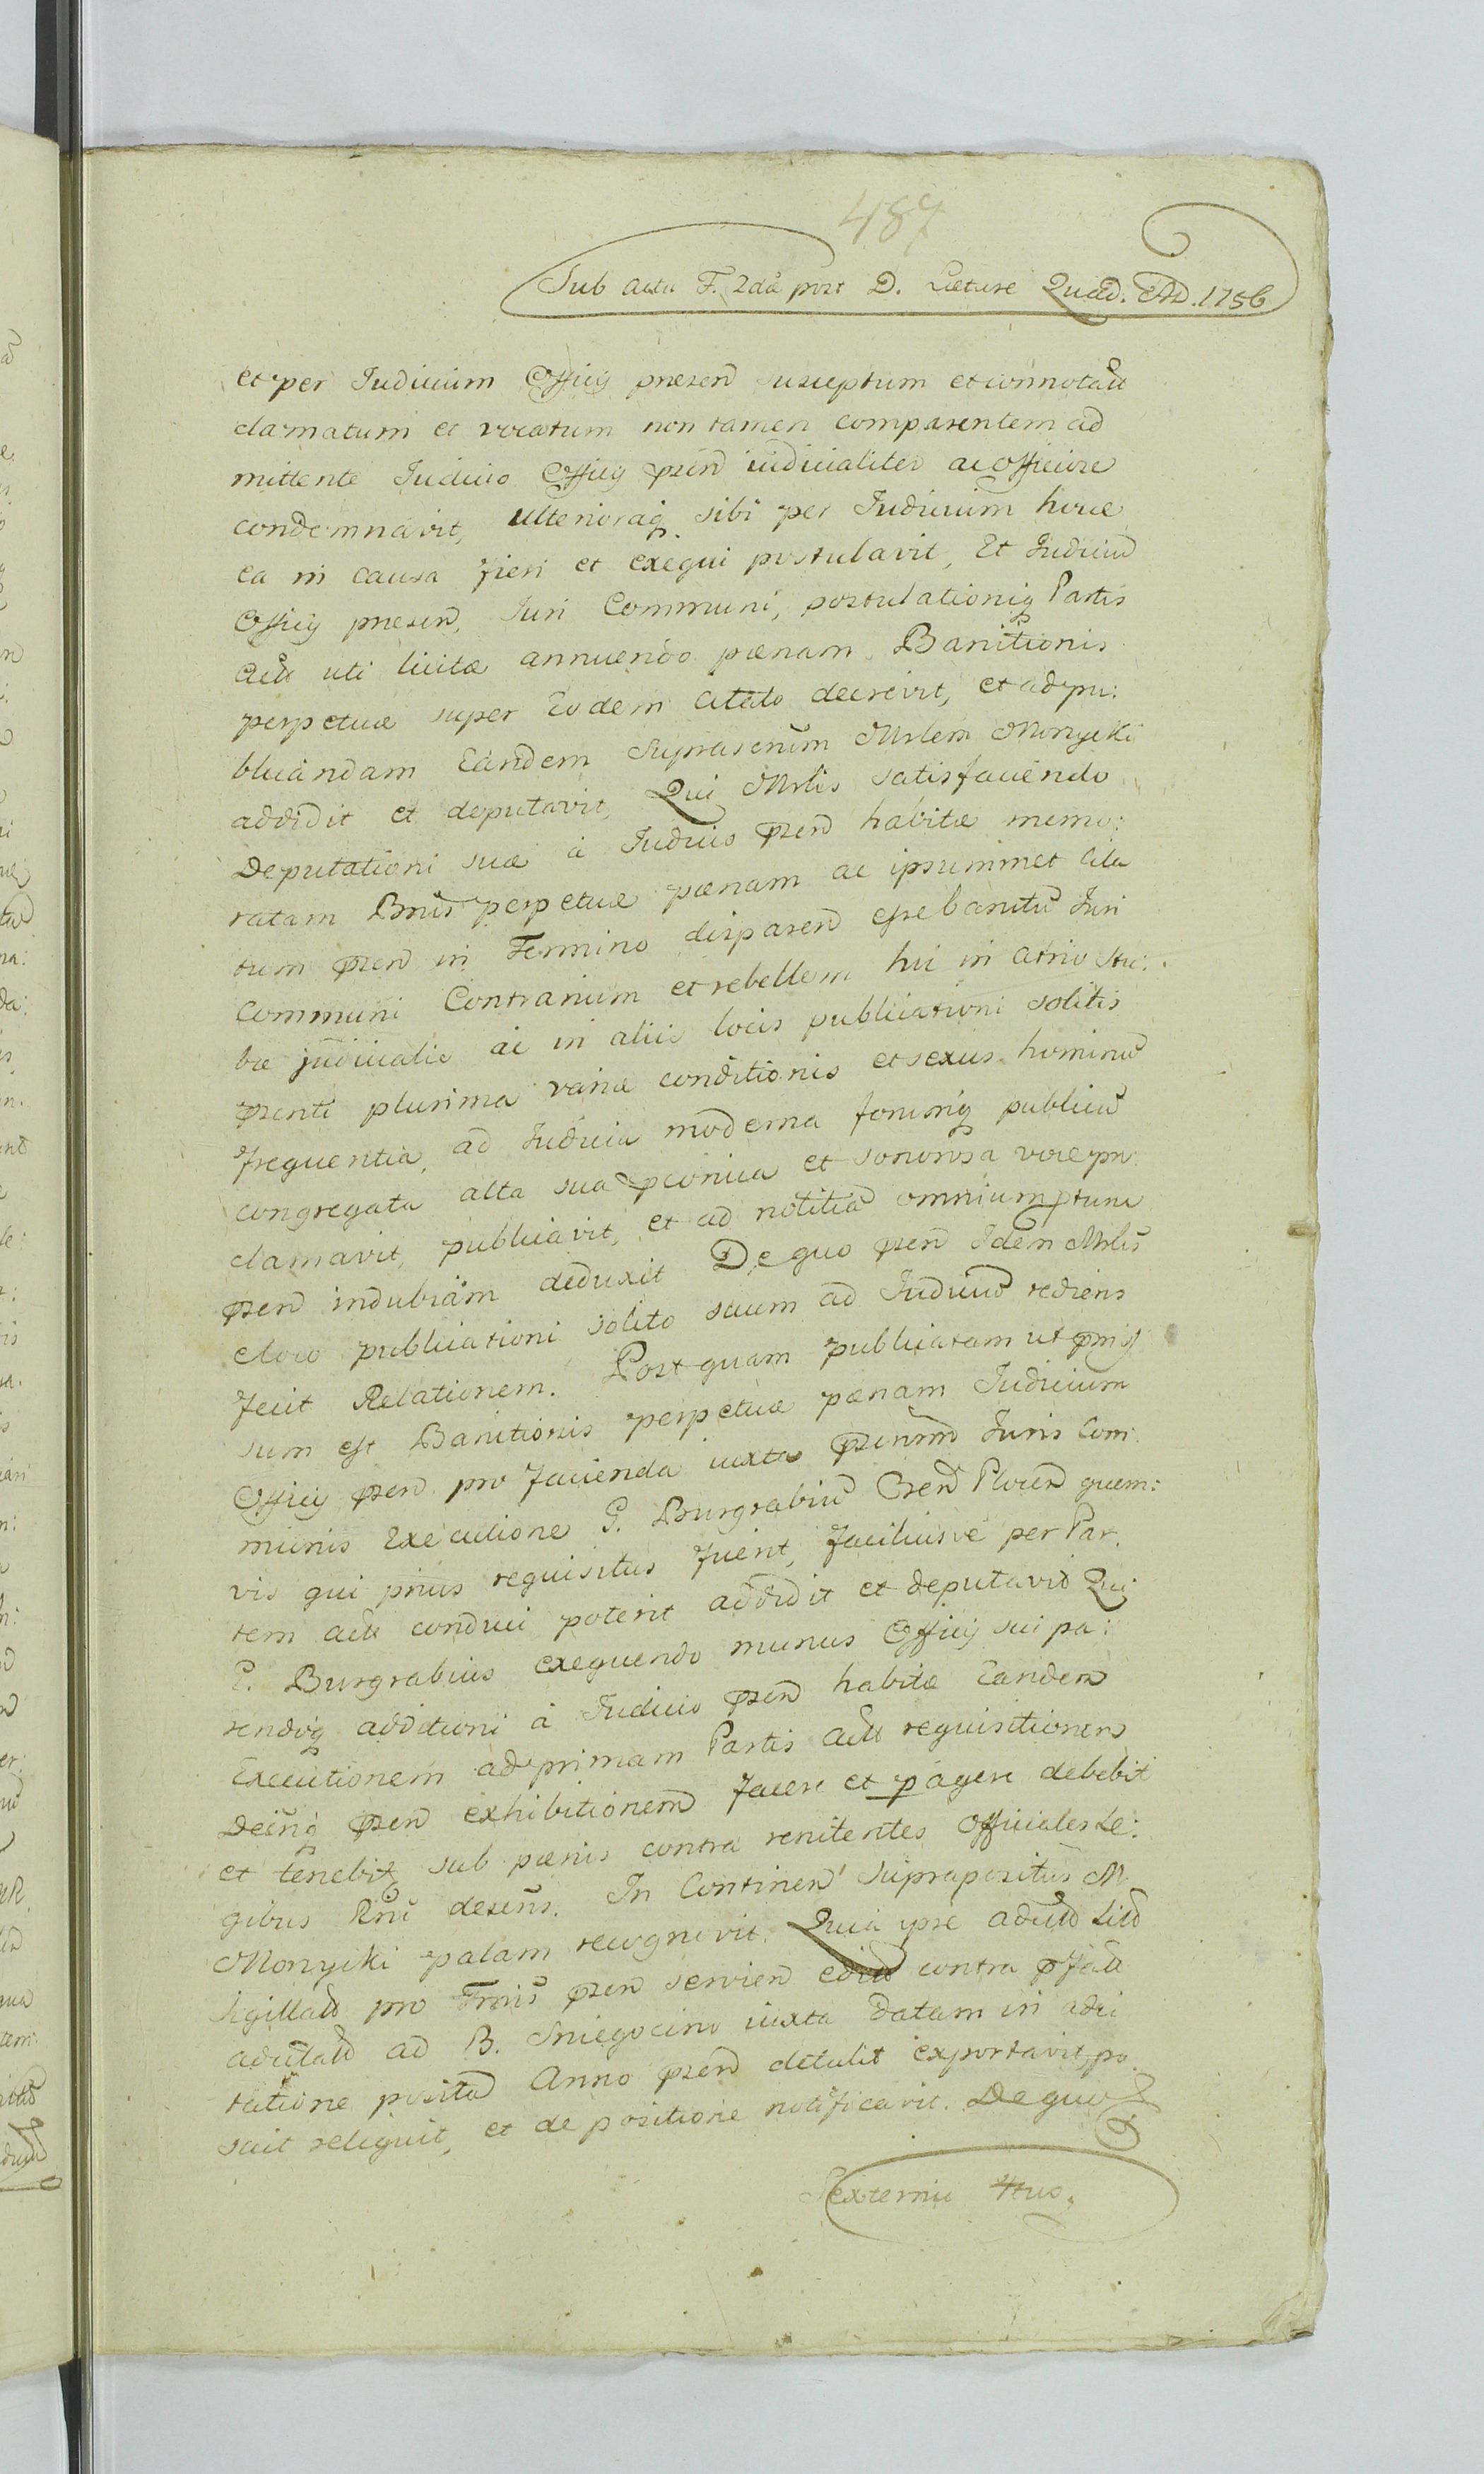 487
Sub actu F. 2dâ post D. Læture Quad. AD. 1756
et per Iudicium Officij presen susceptum et connotatt
clamatum et vocatum non tamen comparentem ad
mittente Iudicio Officij pzen iudicialiter ac officiose
condemnavit, ulterioraq sibi per Iudicium hocce
ea in causa fieri et exequi postulavit, Et Iudiciu
Officij presen, Iuri Communi, postulationiq Partis
Act uti licitæ annuendo pænam Banitionis
perpetuæ super Eodem Citato decrevit, et ad pu:
blicandam Eandem Suprascrum Mrlem Monycki
addidit et deputavit, Qui Mrlis satisfaciendo
Deputationi suæ à Iudicio pzen habitæ memo:
ratam Bnis perpetuæ pænam ac ipsummet Cita
tum pzen in Termino disparen esse banitu Iuri
Communi Contrarium et rebellem hic in atrio Stu:
bæ judicialis ac in aliis locis publicationi solitis
pzenti plurima variæ conditionis et sexus hominu
frequentia, ad Iudicia moderna forumq publicu
congregata alta sua pconica et sonorosa voce pro
clamavit, publicavit, et ad notitia omnium ptunc
pzen indubiam deduxit De quo pzen Idem Mrlis
eloco publicationi solito suum ad Iudiciu rediens
fecit Relationem. Post quam publicatam ut pmis
sum est Banitionis perpetuæ pænam Iudicium
Officij pzen pro facienda iuxta Iuris Com
munis Executione G. Burgrabiu Cren quem:
vis qui prius requisitus fuerit, faciliusve per Par.
tem act conduci poterit addidit et deputavit Qui
G. Burgrabius exequendo munus Officij sui pa:
rendoq additioni à Iudicio pzen habitæ Eandem
Executionem ad primam Partis Act requisitionem
Deinq pzen exhibitionem facere et pagere debebit
et tenebit, sub pænis contra renitentes Officiales Le:
gibus Rni descris. In Continen Suprapositus M
Monycki palam recognovit. Quia ipse
sigillatt pro Trnis pzen servien contra pfatt
ad B. Sniegocino iuxta Datam in adci
tatione posita Anno pzen detulit exportavit, po
suit reliquit, et de positione notificavit. De quo
Sexternu